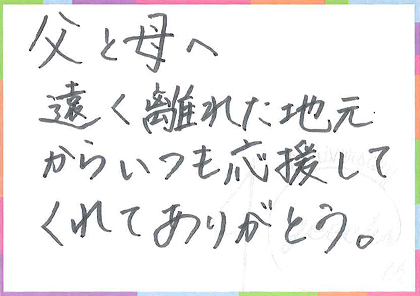 父と母へ
遠く離れた地元
からいつも応援して
くれてありがとう。